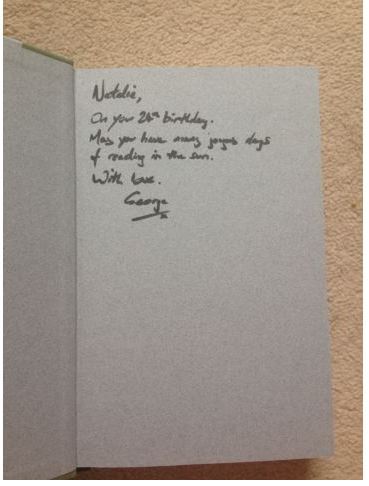 Natalie,
On your 26th birthday.
May you have many joyous days
of reading in the sun.
With love.
George
x